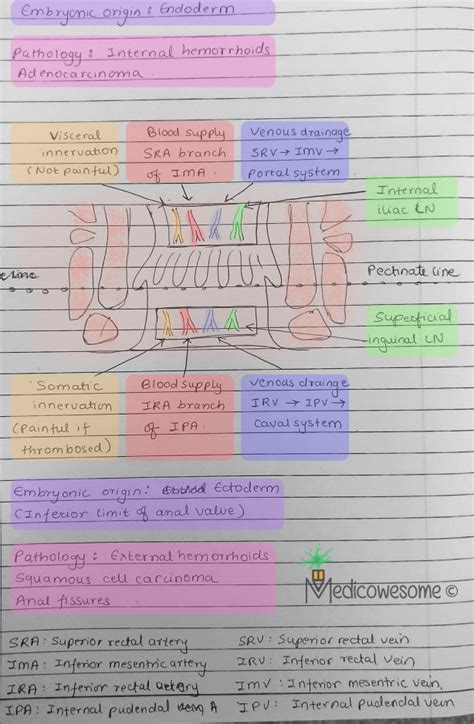 Embryonic origin: Endoderm
Pathology: Internal hemorrhoids
Adenocarcinoma
Visceral
innervation
(Not painful)
Blood supply
SRA branch
of IMA.
Venous drainage
SRV → IMV →
Portal system
Internal
iliac LN
Pectinate line
Superficial
inguinal LN
Somatic
innervation
(Painful if
thrombosed)
Blood supply
IRA branch
of IPA.
Venous drainge
IRV → IPV →
Caval system
Embryonic origin: Ectoderm
(Inferior limit of anal valve)
Pathology: External hemorrhoids
Squamous cell carcinoma
Anal fissures
Medicowesome ©
SRA: Superior rectal artery
SRV: Superior rectal vein
IMA: Inferior mesentric artery
IRV: Inferior rectal vein
IRA: Inferior rectal artery
IMV: Inferior mesentric vein,
IPA: Internal pudendal A
IPV: Internal pudendal vein